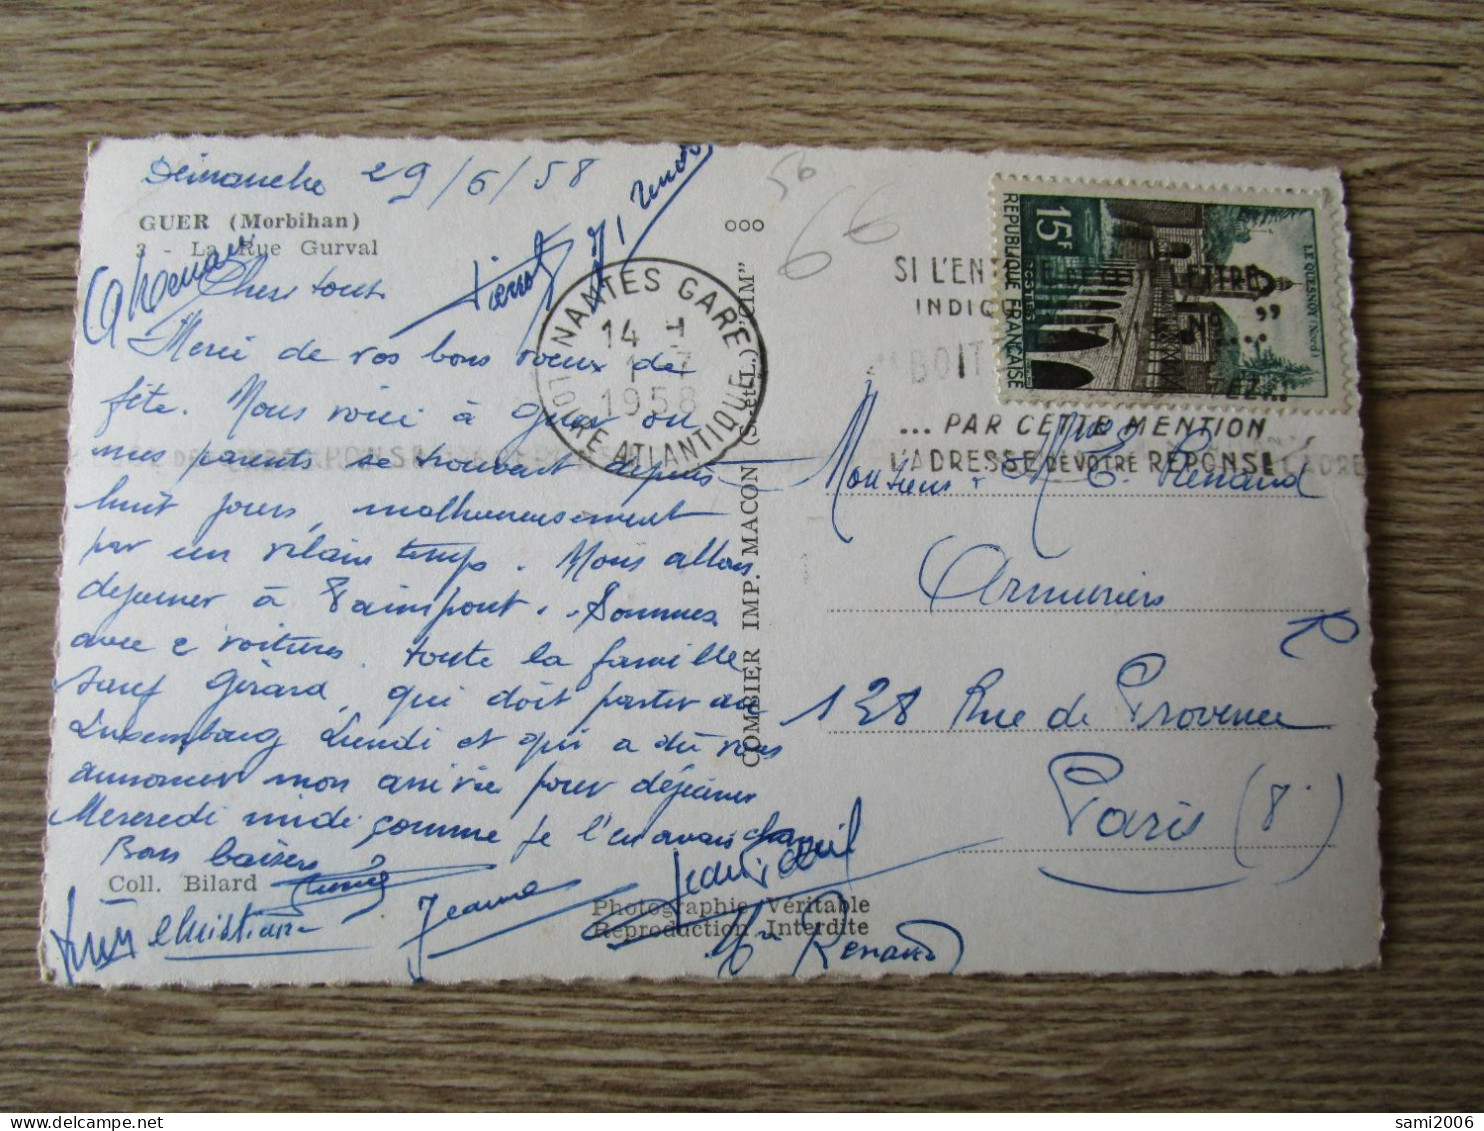 Dimanche 29/6/58
GUER (Morbihan)
3 - La Rue Gurval
Chers tous
Merci de vos bons voeux de
fête. Nous voici à Guer où
mes parents se trouvent depuis
huit jours, malheureusement
par un vilain temps. Nous allons
dejeuner à Paimpont. Sommes
avec 2 voitures. toute la famille
sauf Gérard, qui doit partir au
Luxembourg Lundi et qui a dû vous
annoncer mon arrivée pour déjeuner
Mercredi midi comme je l'en avais chargé
Bons baisers
Coll. Bilard
Christiane
Jeanne
Renard
Pierrot
Photographie Véritable
Reproduction Interdite
COMBIER IMP. MACON (S.-et-L.) "CIM"
NANTES GARE
14 H
1 - 7
1958
LOIRE ATLANTIQUE
56
66
SI L'EN LETTRE
INDIQ No "
BOIT EZ...
... PAR CETTE MENTION
L'ADRESSE DE VOTRE RÉPONSE
15F
RÉPUBLIQUE FRANÇAISE
POSTES
LE QUESNOY (NORD)
Monsieur & Mme E. Renard
Armuriers
128 Rue de Provence
Paris (8e)
sami2006